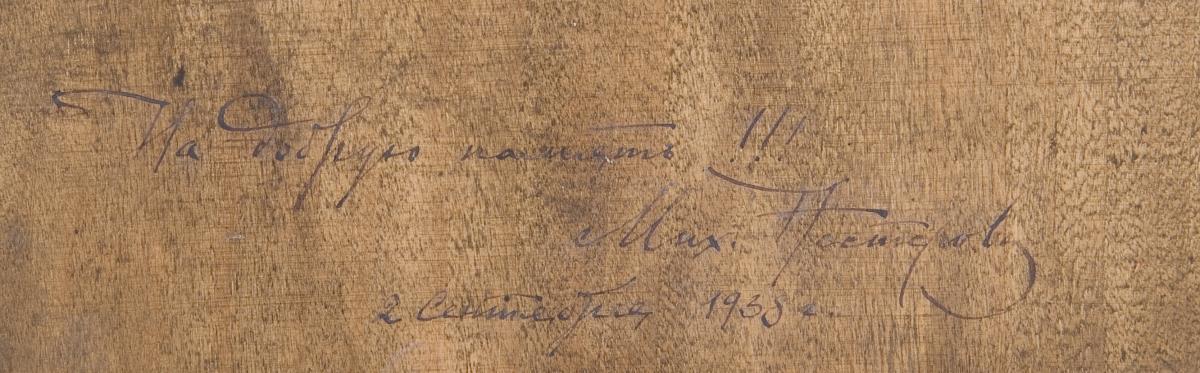 На добрую память !!!
Мих. Нестеров
2 сентября 1935 г.